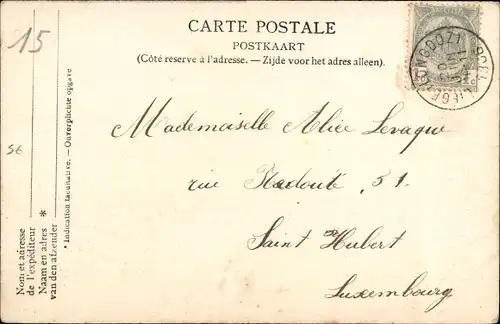 15
CARTE POSTALE
POSTKAART
(Côté réservé à l'adresse. — Zijde voor het adres alleen).
Mademoiselle Alice Levaque
rue Redouté, 51.
Saint Hubert
Luxembourg
Nom et adresse
de l'expéditeur
Naam en adres *
van den afzender
* Indication facultative. — Onverplichte opgave.